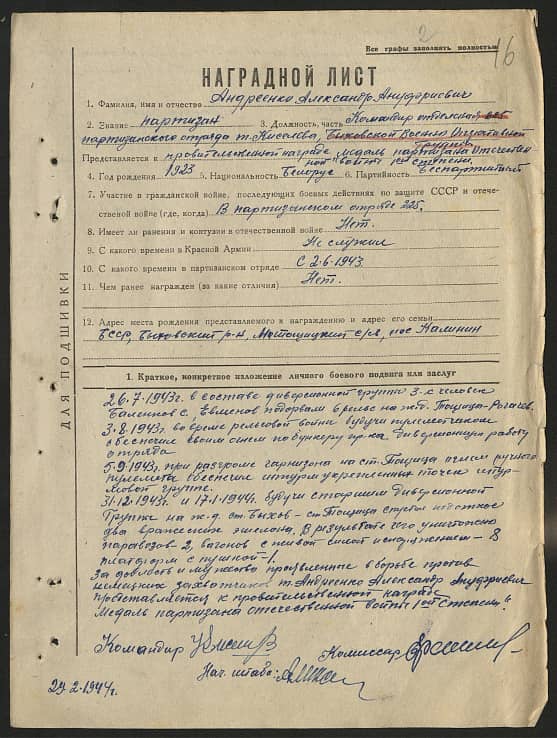 2
16
Все графы заполнять полностью
НАГРАДНОЙ ЛИСТ
1. Фамилия, имя и отчество Андреенко Александр Ануфриевич
2. Звание партизан 3. Должность, часть Командир отделения
партизанского отряда т. Киселева, Быховской Военно Оперативной
группы
Представляется к правительственной награде медаль партизана Отечествен
ной войны 1ой степени.
4. Год рождения 1923 5. Национальность Белорус 6. Партийность беспартийный
7. Участие в гражданской войне, последующих боевых действиях по защите СССР и отече-
ственой войне (где, когда) В партизанском отряде 225.
8. Имеет ли ранения и контузии в отечественной войне Нет.
9. С какого времени в Красной Армии Не служил
10. С какого времени в партизанском отряде С 2.6.1943.
11. Чем ранее награжден (за какие отличия) Нет.
12. Адрес места рождения представляемого к награждению и адрес его семьи
БССР, Быховский р-н, с/с, пос Калинин
ДЛЯ ПОДШИВКИ
1. Краткое, конкретное изложение личного боевого подвига или заслуг
26.7.1943г. в составе диверсионной группы 3-х человек
с. подорвали 6 рельс на ж.д. Тощица-Рогачев.
3.8.1943г. во время рельсовой войны будучи пулеметчиком
обеспечил своим огнем по бункеру пр-ка диверсионную работу
отряда
5.9.1943г. при разгроме гарнизона на ст. Тощица огнем ручного
пулемета обеспечил штурм укрепленных точек штур-
мовой группе.
31.12.1943г. и 17.1.1944г. будучи старшим диверсионной
группы на ж.д. ст. Быхов - ст. Тощица
два вражеские эшелона. В результате чего уничтожено
паровозов - 2, вагонов с живой силой и снаряжением - 8
платформ с пушкой - 1.
За доблесть и мужество проявленные в борьбе против
немецких захватчиков т. Андреенко Александр Ануфриевич
представляется к правительственной награде
Медаль партизана отечественной войны 1ой степени.
Командир
Комиссар
Нач. штаба:
29.2.1944г.